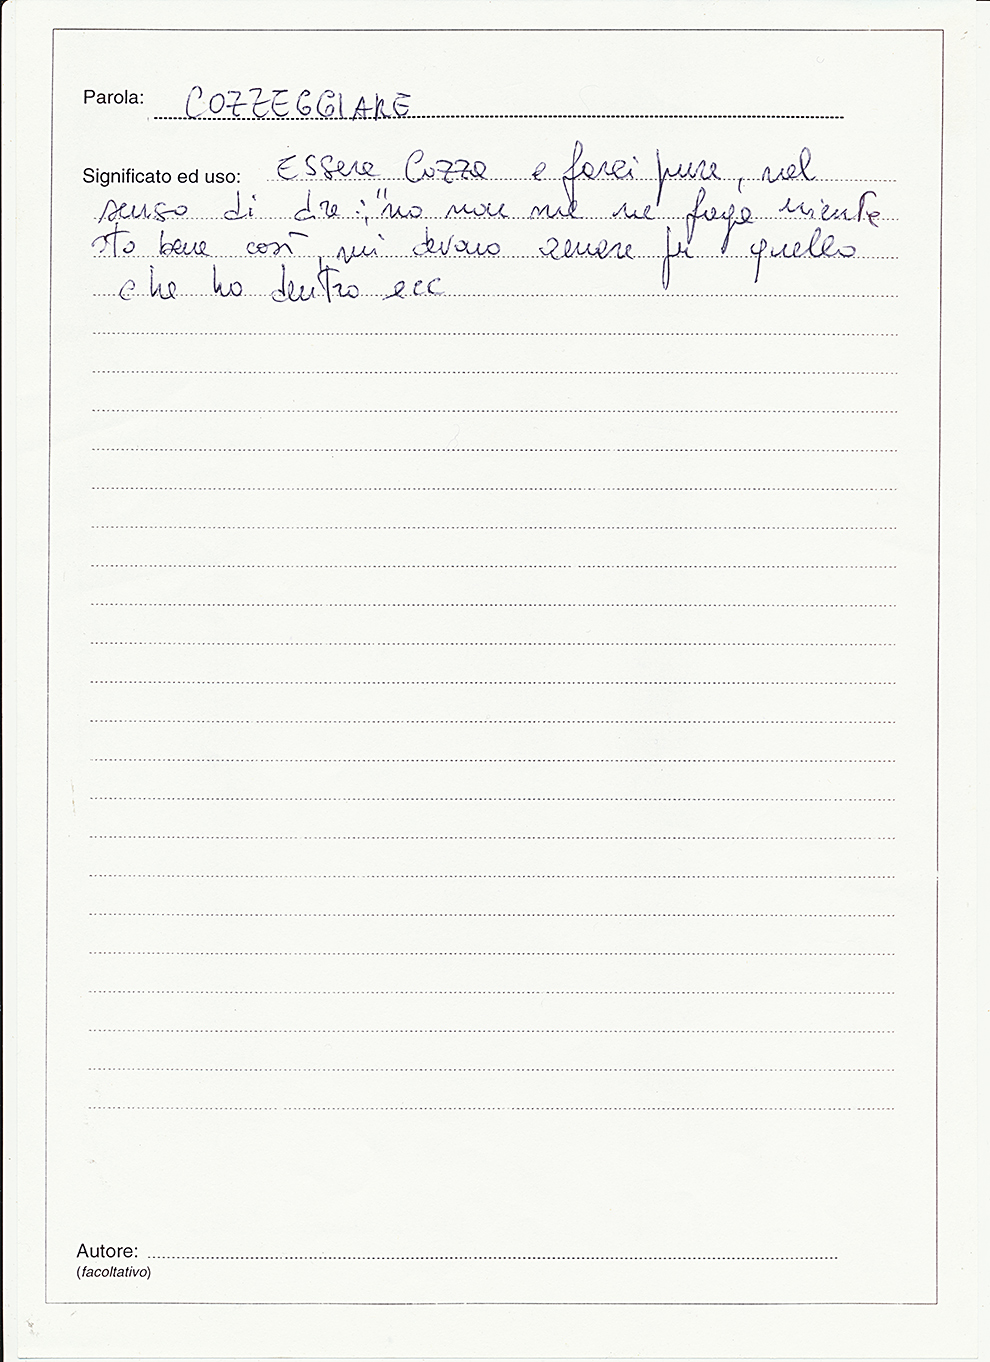 Parola: COZZEGGIARE
Significato ed uso: Essere Cozza e farci pure, nel
senso di dire: "no non me ne frega niente
sto bene così, mi devono amare per quello
che ho dentro ecc
Autore:
(facoltativo)